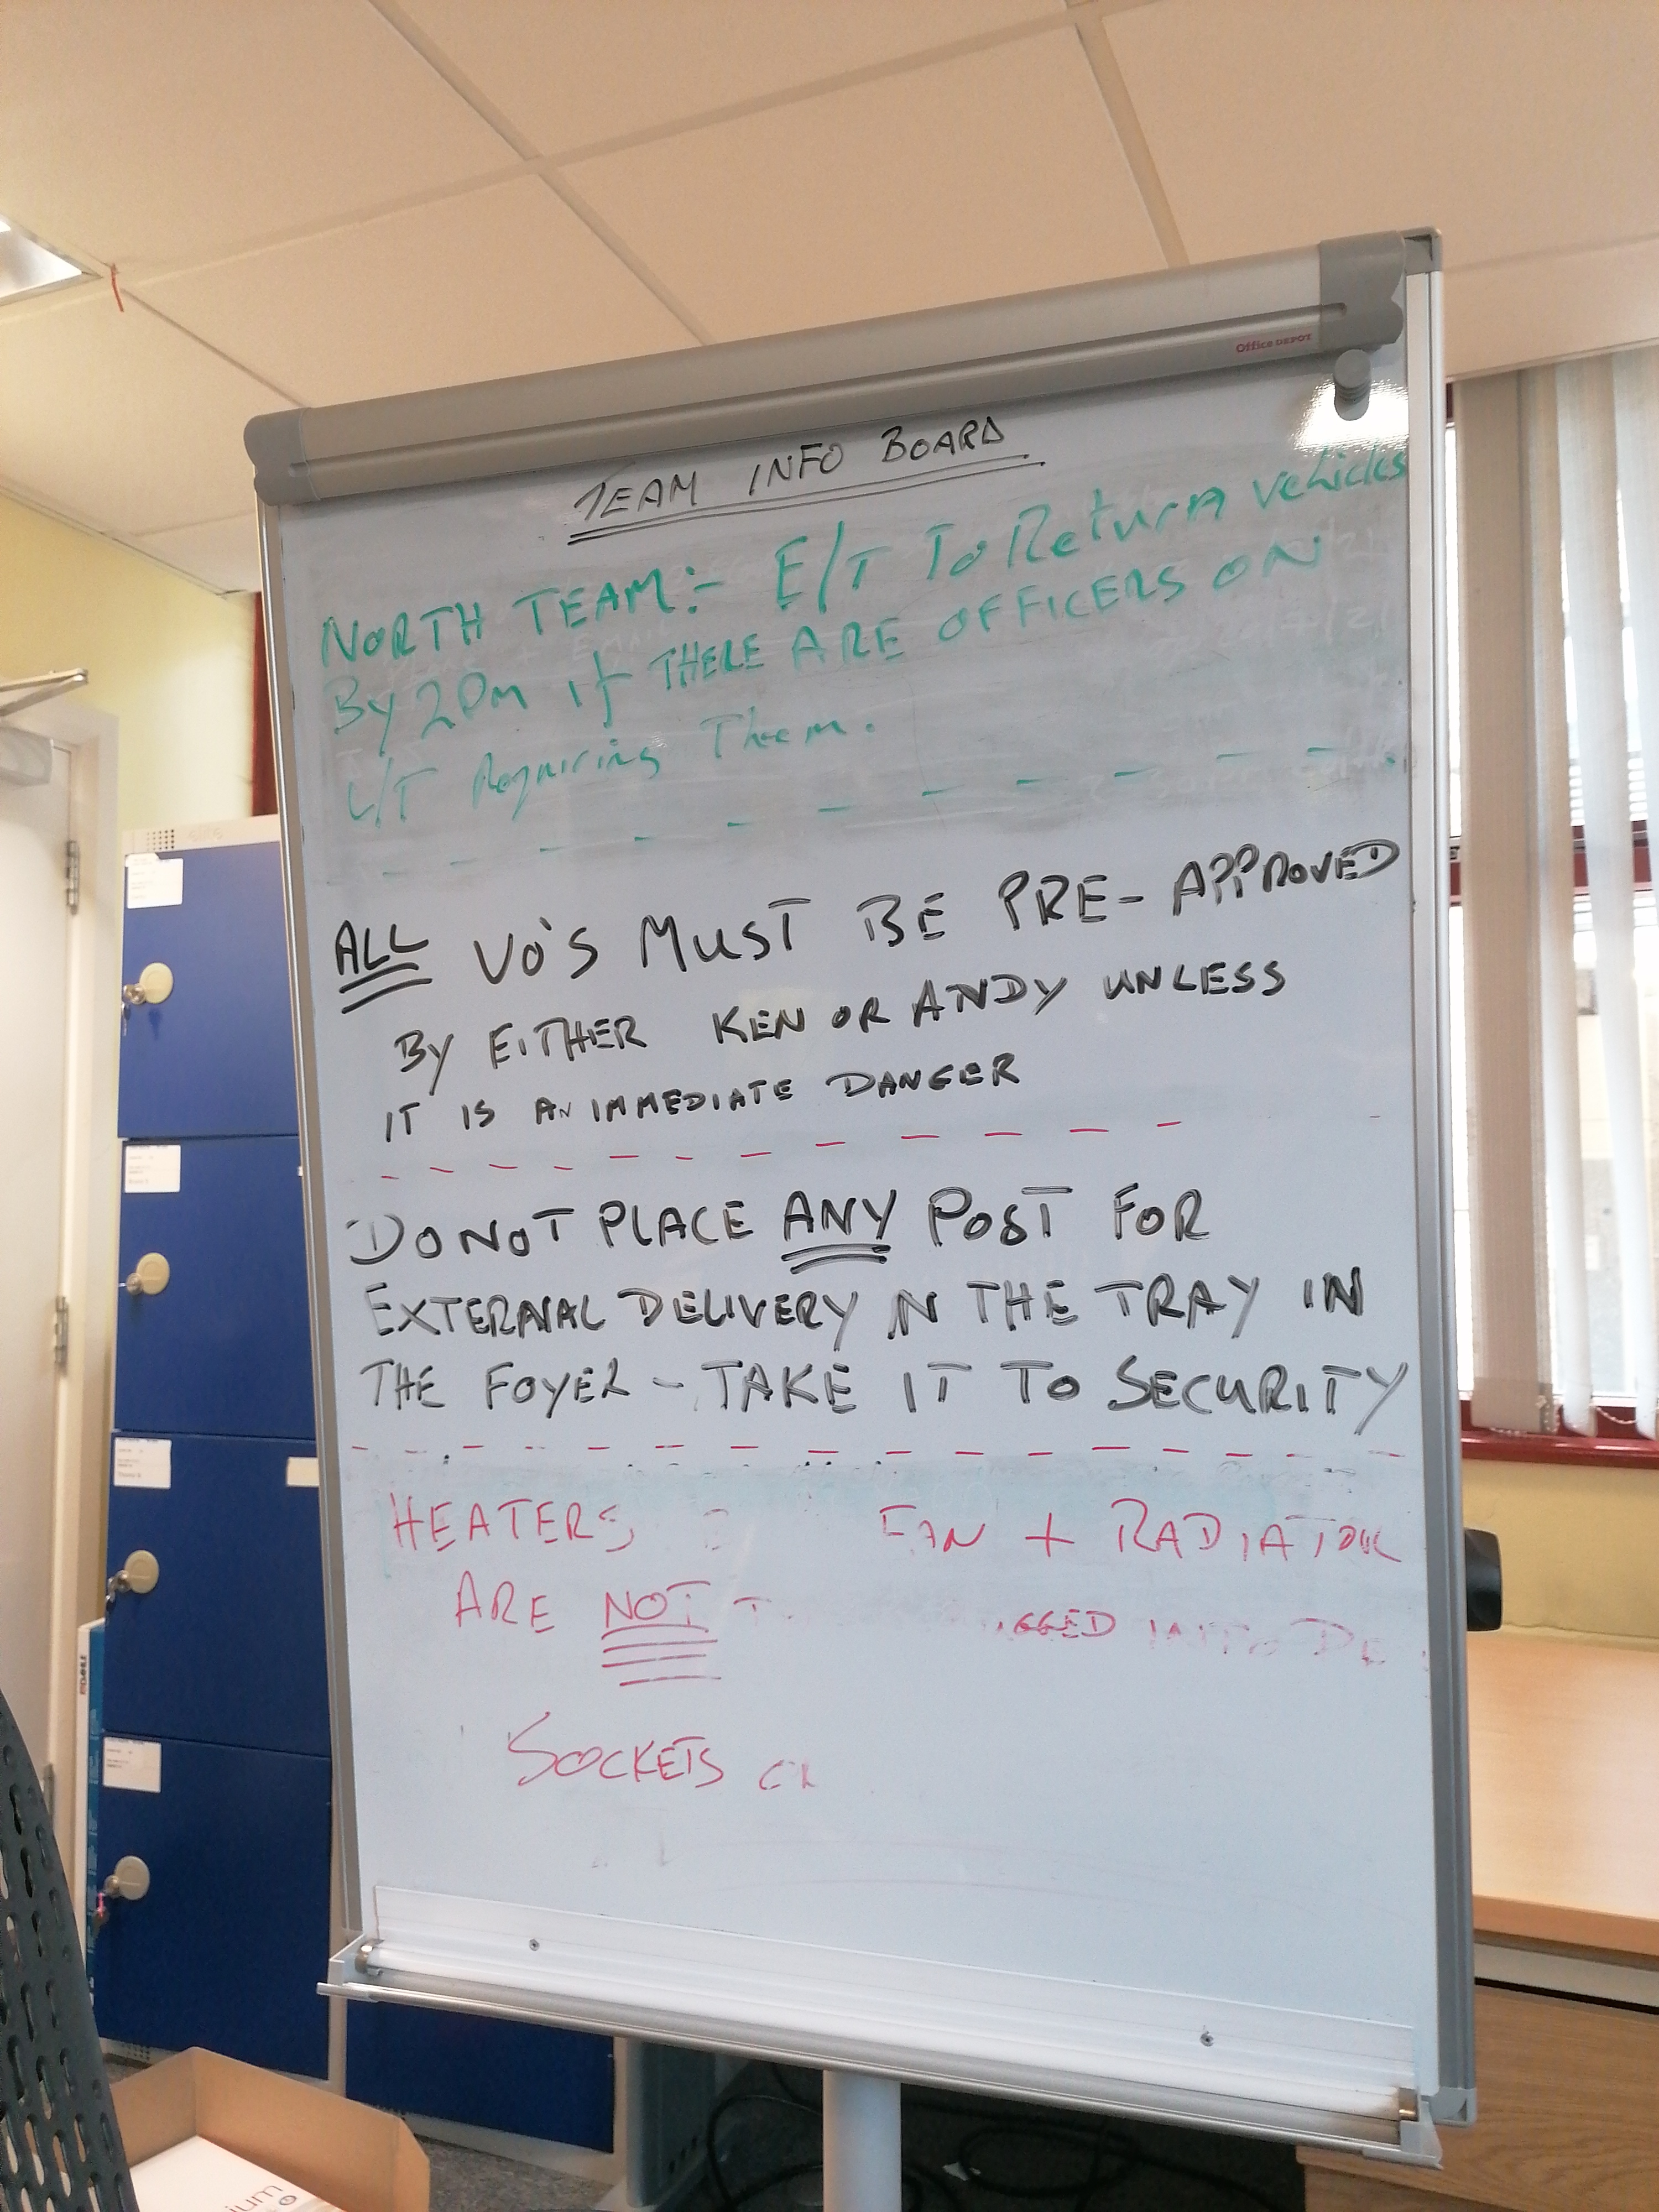 Office DEPOT
TEAM INFO BOARD
NORTH TEAM:- E/T To Return vehicles
By 2pm if THERE ARE OFFICERS ON
L/T Requiring Them.
ALL VO'S MUST BE PRE-APPROVED
BY EITHER KEN OR ANDY UNLESS
IT IS AN IMMEDIATE DANGER
DO NOT PLACE ANY POST FOR
EXTERNAL DELIVERY IN THE TRAY IN
THE FOYER - TAKE IT TO SECURITY
HEATERS FAN + RADIATOR
ARE NOT GGED INTO DE
SOCKETS